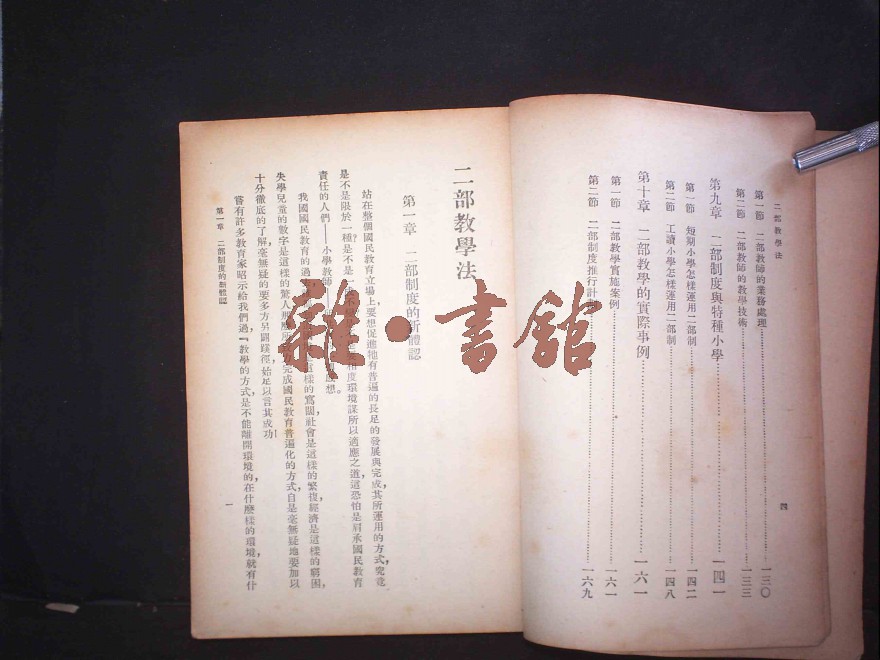 二部教學法
第一節　二部教師的業務處理……一三〇
第二節　二部教師的教學技術……一三三
第九章　二部制度與特種小學……一四一
第一節　短期小學怎樣運用二部制……一四二
第二節　工讀小學怎樣運用二部制……一四八
第十章　二部教學的實際事例……一六一
第一節　二部教學實施案例……一六一
第二節　二部制度推行計……一六九
四
二部教學法
第一章　二部制度的新體認
站在整個國民教育立場上，要想促進牠有普遍的長足的發展與完成，其所運用的方式，究竟
是不是限於一種，是不是一度環境謀所以適應之道，這恐怕是肩承國民教育
責任的人們——小學教師——想。
我國國民教育的過這樣的寫闊，社會是這樣的繁複，經濟是這樣的窮困，
失學兒童的數字是這樣的驚人，那麼所完成國民教育普遍化的方式，自是毫無疑地要加以
十分徹底的了解，毫無疑的要多方另闢蹊徑，始足以言其成功！
嘗有許多教育家昭示給我們過『教學的方式，是不能離開環境的，在什麼樣的環境，就有什
第一章　二部制度的新體認
一
雜·書館